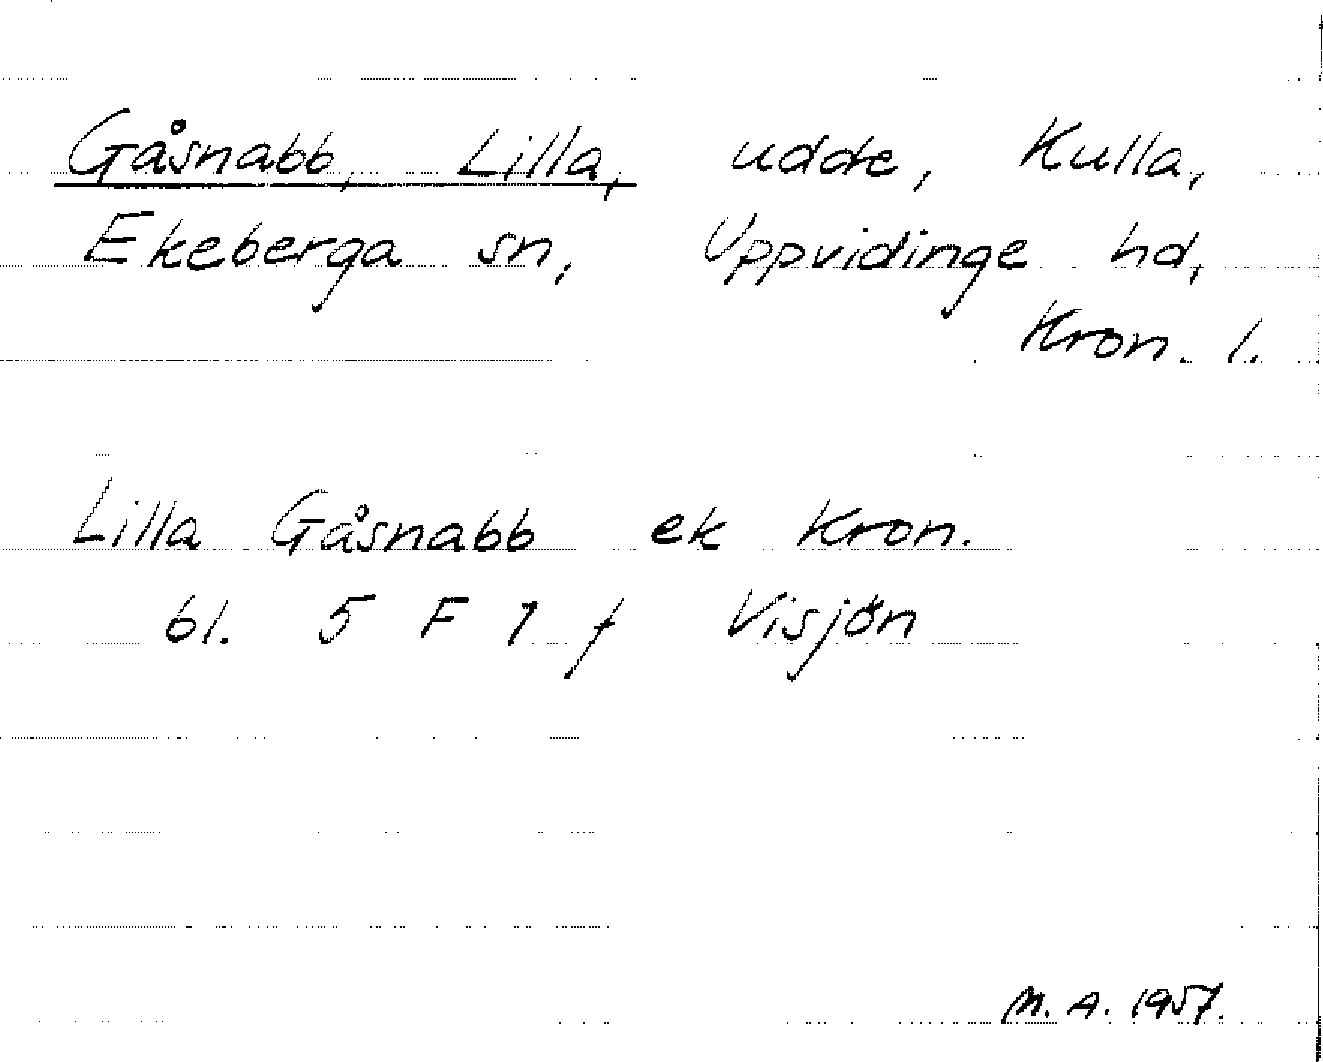 Gåsnabb, Lilla, udde, Kulla,
Ekeberga sn, Uppvidinge hd,
Kron. l.
Lilla Gåsnabb ek Kron.
bl. 5 F 7 f Visjön
M. A. 1957.